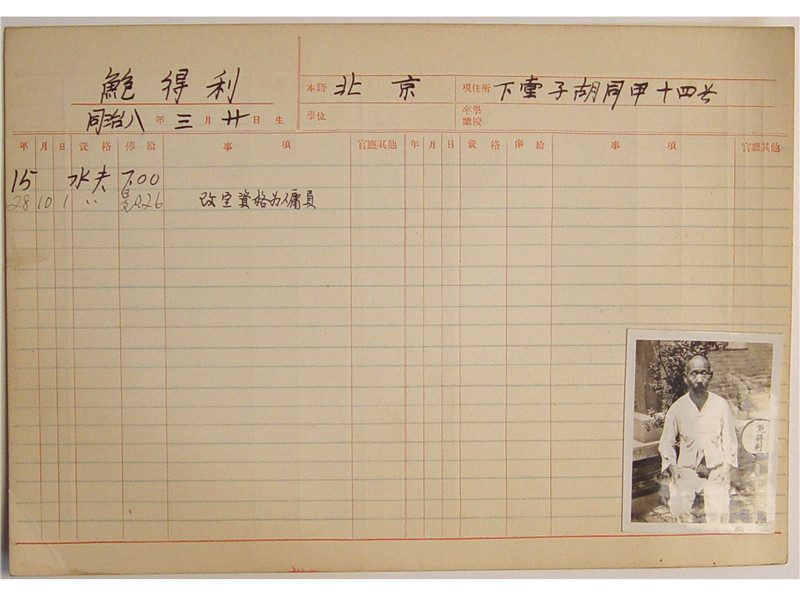 鮑得利
同治八年三月廿日生
本籍 北京
學位
現住所 下堂子胡同甲十四号
卒業學校
年 月 日 資格 俸給 事項 官廳其他 年 月 日 資格 俸給 事項 官廳其他
15 水夫 7.00
28 10 1 〃 改定資格为傭員
鮑得利